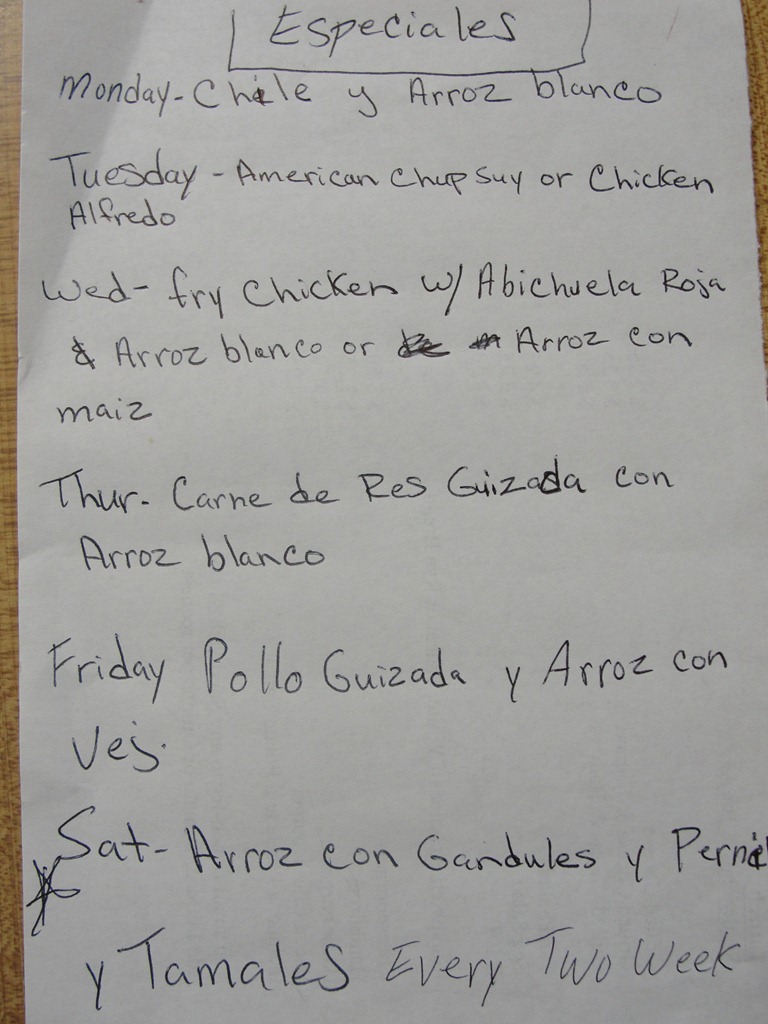 Especiales
Monday - Chile y Arroz blanco
Tuesday - American Chup Suy or Chicken
Alfredo
Wed - fry Chicken w/ Abichuela Roja
& Arroz blanco or Arroz con
maiz
Thur - Carne de Res Guizada con
Arroz blanco
Friday Pollo Guizada y Arroz con
Vej.
Sat - Arroz con Gandules y Pernil
y Tamales Every Two Week